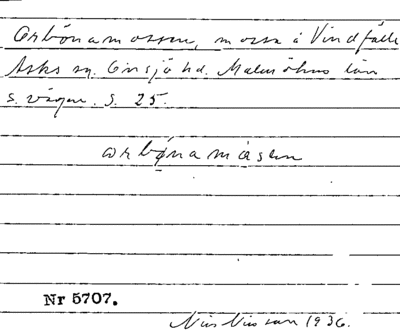 Orbönamossen, mosse å Vindfälle
Asks sn. Onsjö hd. Malmöhus län
s. vägen. S. 25.
orbönamåsen
Nr 5707.
Nils Nilsson 1936.